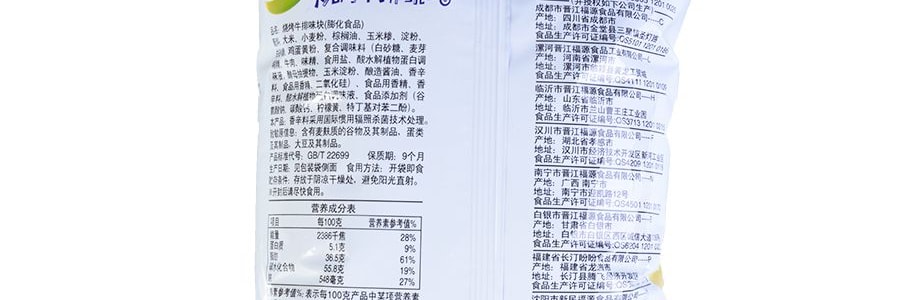 名称：烧烤牛排味块(膨化食品)
大米、小麦粉、棕榈油、玉米糁、淀粉、
鸡蛋黄粉、复合调味料（白砂糖、麦芽
牛肉、味精、食用盐、酸水解植物蛋白调
味液、酵母抽提物、玉米淀粉、酿造酱油、香辛
料、食品用香精、二氧化硅）、食品用香精、香
辛料、酸水解植物蛋白调味液、食品添加剂（谷
氨酸钠、碳酸钙、柠檬黄、特丁基对苯二酚）。
本产品：香辛料采用国际惯用辐照杀菌技术处理。
致敏原信息：含有麸质的谷物及其制品、蛋类
及其制品、大豆及其制品。
产品标准代号：GB/T 22699 保质期：9个月
生产日期：见包装袋侧面 食用方法：开袋即食
贮存条件：存放于阴凉干燥处，避免阳光直射。
※开封后请尽快食用。
营养成分表
项目 每100克 营养素参考值%
能量 2386千焦 28%
蛋白质 5.1克 9%
脂肪 36.5克 61%
碳水化合物 55.8克 19%
548毫克 27%
营养素参考值%：表示每100克产品中某项营养素
(并授权如下公司生产)
成都市晋江福源食品有限公司----C
产地：四川省成都市
地址：成都市金堂县三星镇
食品生产许可证编号:QS5101 1201
漯河晋江福源食品工业有限公司----L
产地：河南省漯河市
食品生产许可证编号:QS4111 1201
临沂市晋江福源食品有限公司----H
产地：山东省临沂市
地址：临沂市兰山曹王庄工业园
食品生产许可证编号:QS3713 1201
汉川市晋江福源食品有限公司
产地：湖北省孝感市
地址：汉川市经济技术开发区新河工业
食品生产许可证编号:QS4209 1201
南宁市晋江福源食品有限公司
产地：广西 南宁市
地址：南宁市迎凯路12号
食品生产许可证编号:QS4501 1201
白银市晋江福源食品有限公司
产地：甘肃省白银市
地址：白银市白银区西区诚信大道
食品生产许可证编号:QS6204 1201
福建省长汀盼盼食品有限公司
产地：福建省龙岩市
地址：长汀县腾飞
沈阳市新民福源食品有限公司